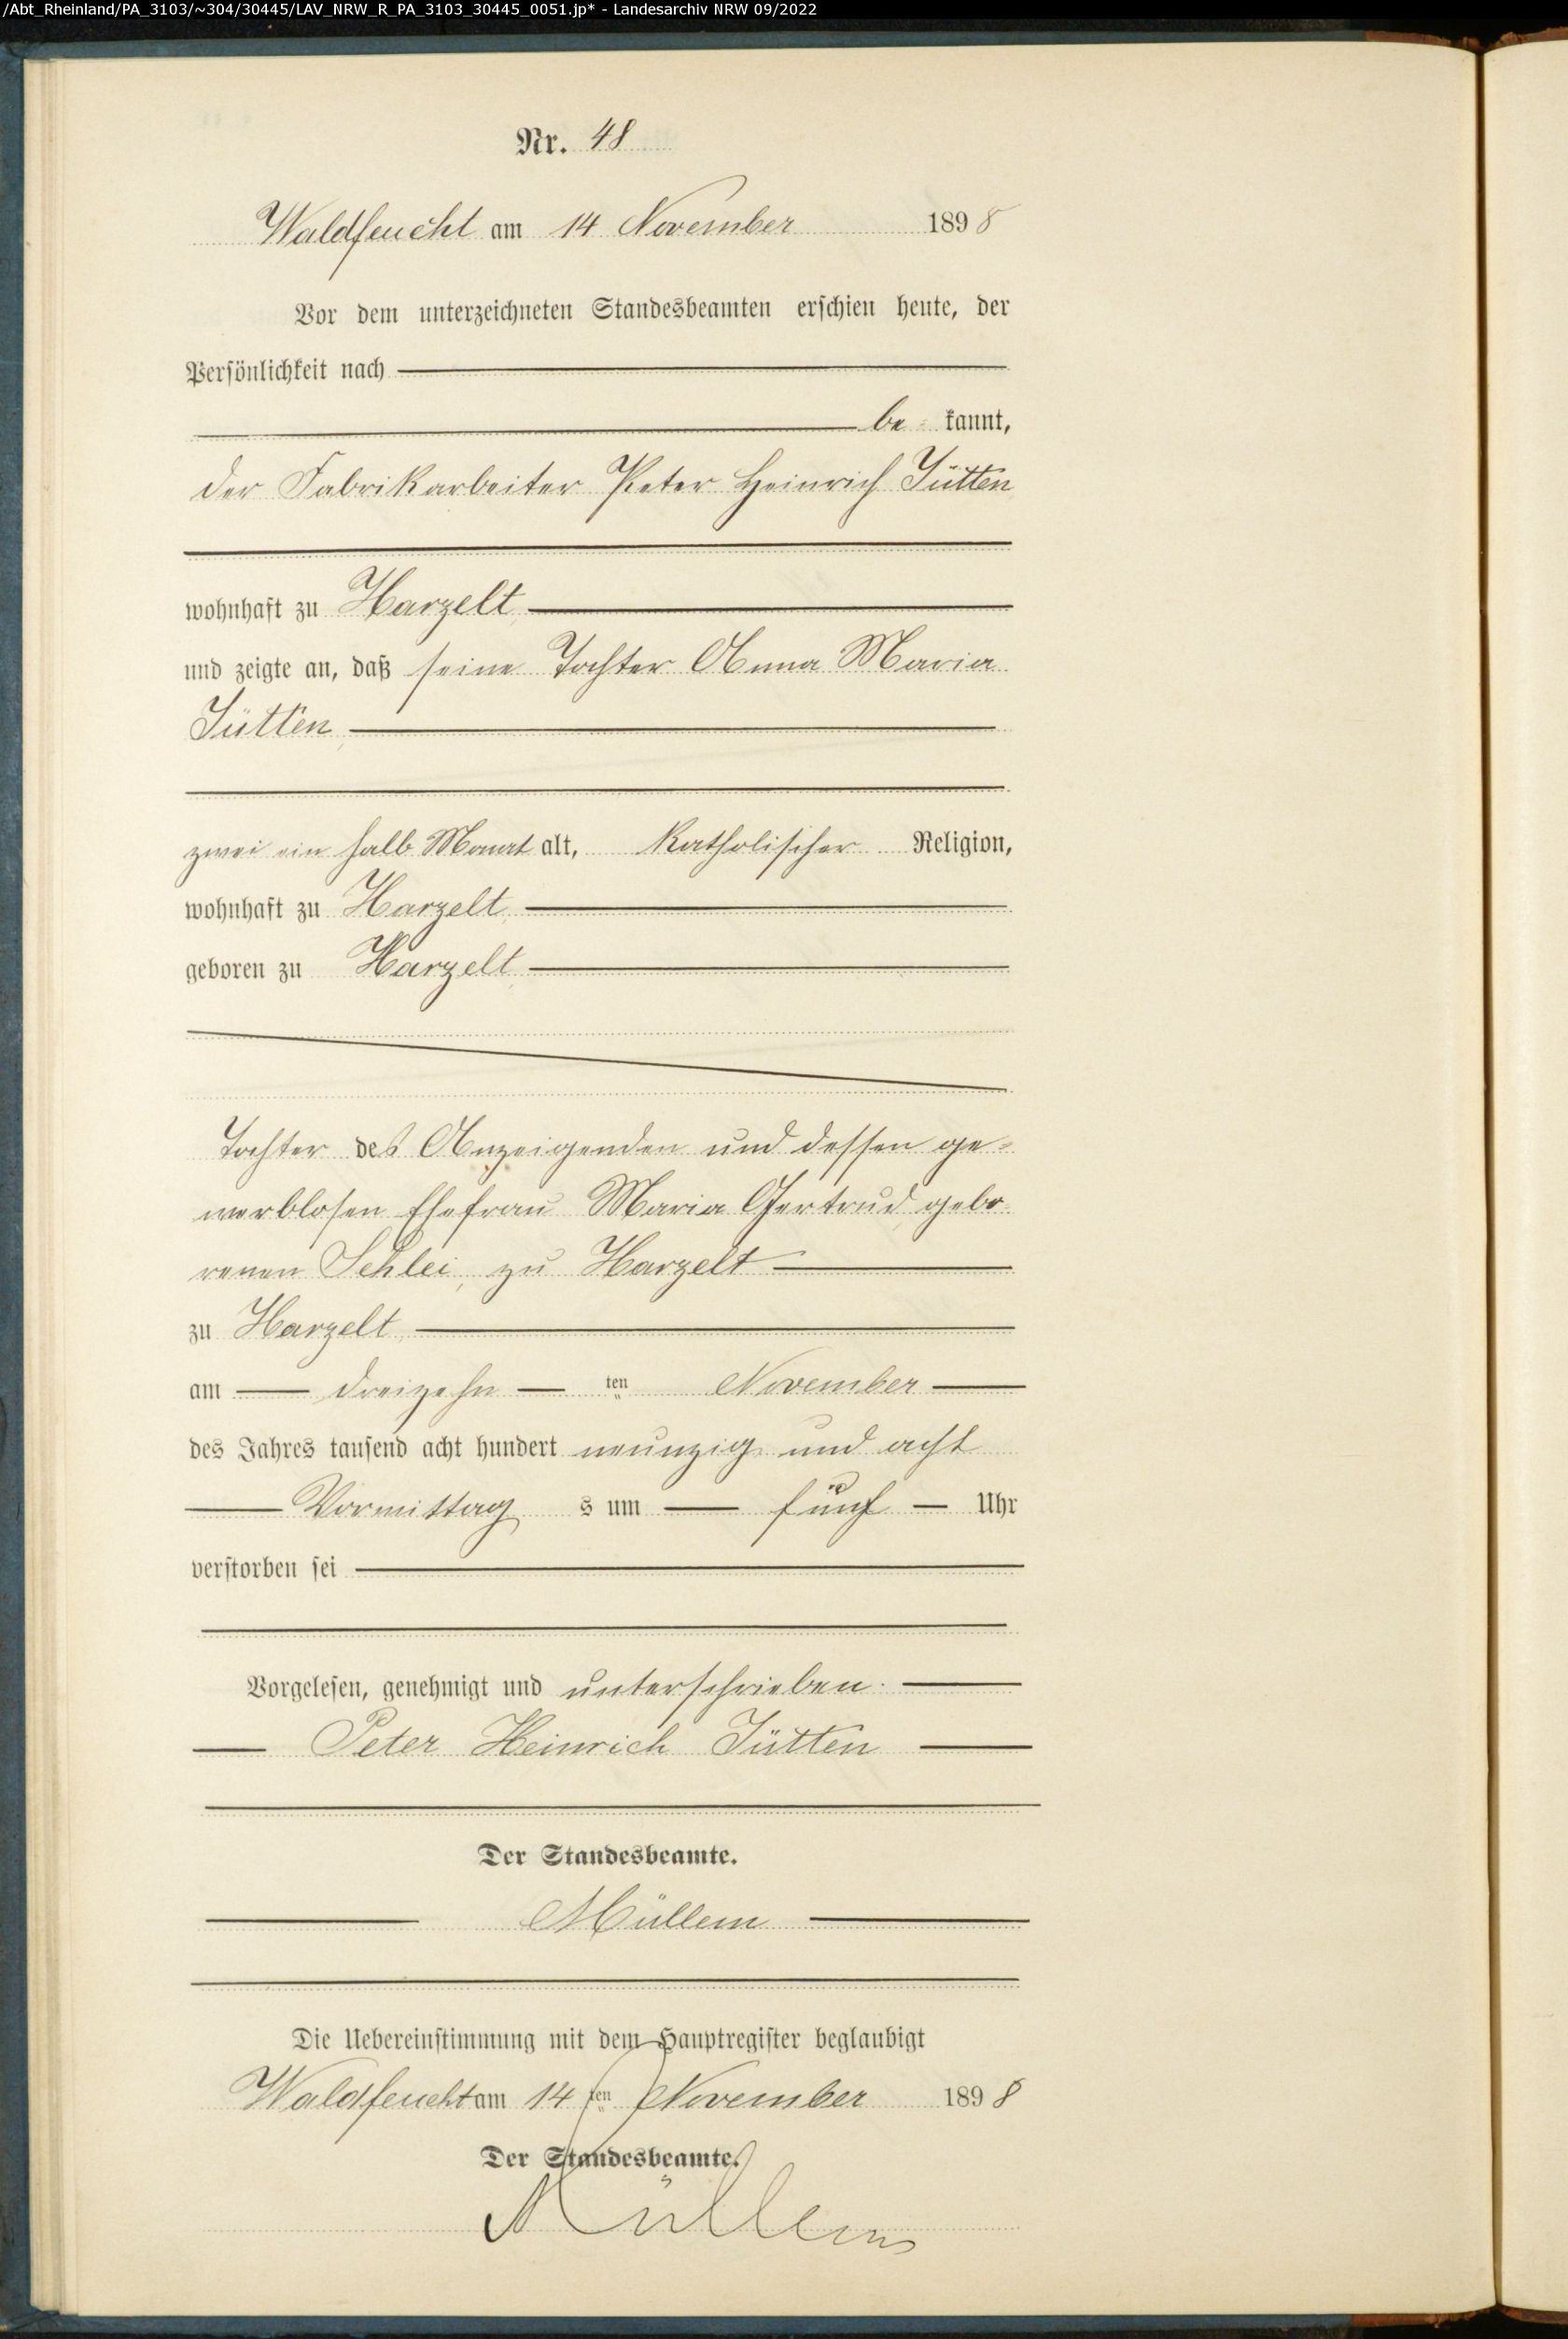 /Abt_Rheinland/PA_3103/~304/30445/LAV_NRW_R_PA_3103_30445_0051.jp* - Landesarchiv NRW 09/2022
Nr. 48
Waldfeucht am 14 November 1898
Vor dem unterzeichneten Standesbeamten erschien heute, der
Persönlichkeit nach
be kannt,
der Fabrikarbeiter Peter Heinrich Jütten
wohnhaft zu Harzelt
und zeigte an, daß seine Tochter Anna Maria
Jütten
zwei ein halb Monat alt, katholischer Religion,
wohnhaft zu Harzelt
geboren zu Harzelt
Tochter des Anzeigenden und dessen ge-
werblosen Ehefrau Maria Gertrud gebo
renen Schlei, zu Harzelt
zu Harzelt
am dreizehn ten November
des Jahres tausend acht hundert neunzig und acht
Vormittag s um fünf Uhr
verstorben sei
Vorgelesen, genehmigt und unterschrieben.
Peter Heinrich Jütten
Der Standesbeamte.
Müllem
Die Uebereinstimmung mit dem Hauptregister beglaubigt
Waldfeucht am 14 ten November 1898
Der Standesbeamte.